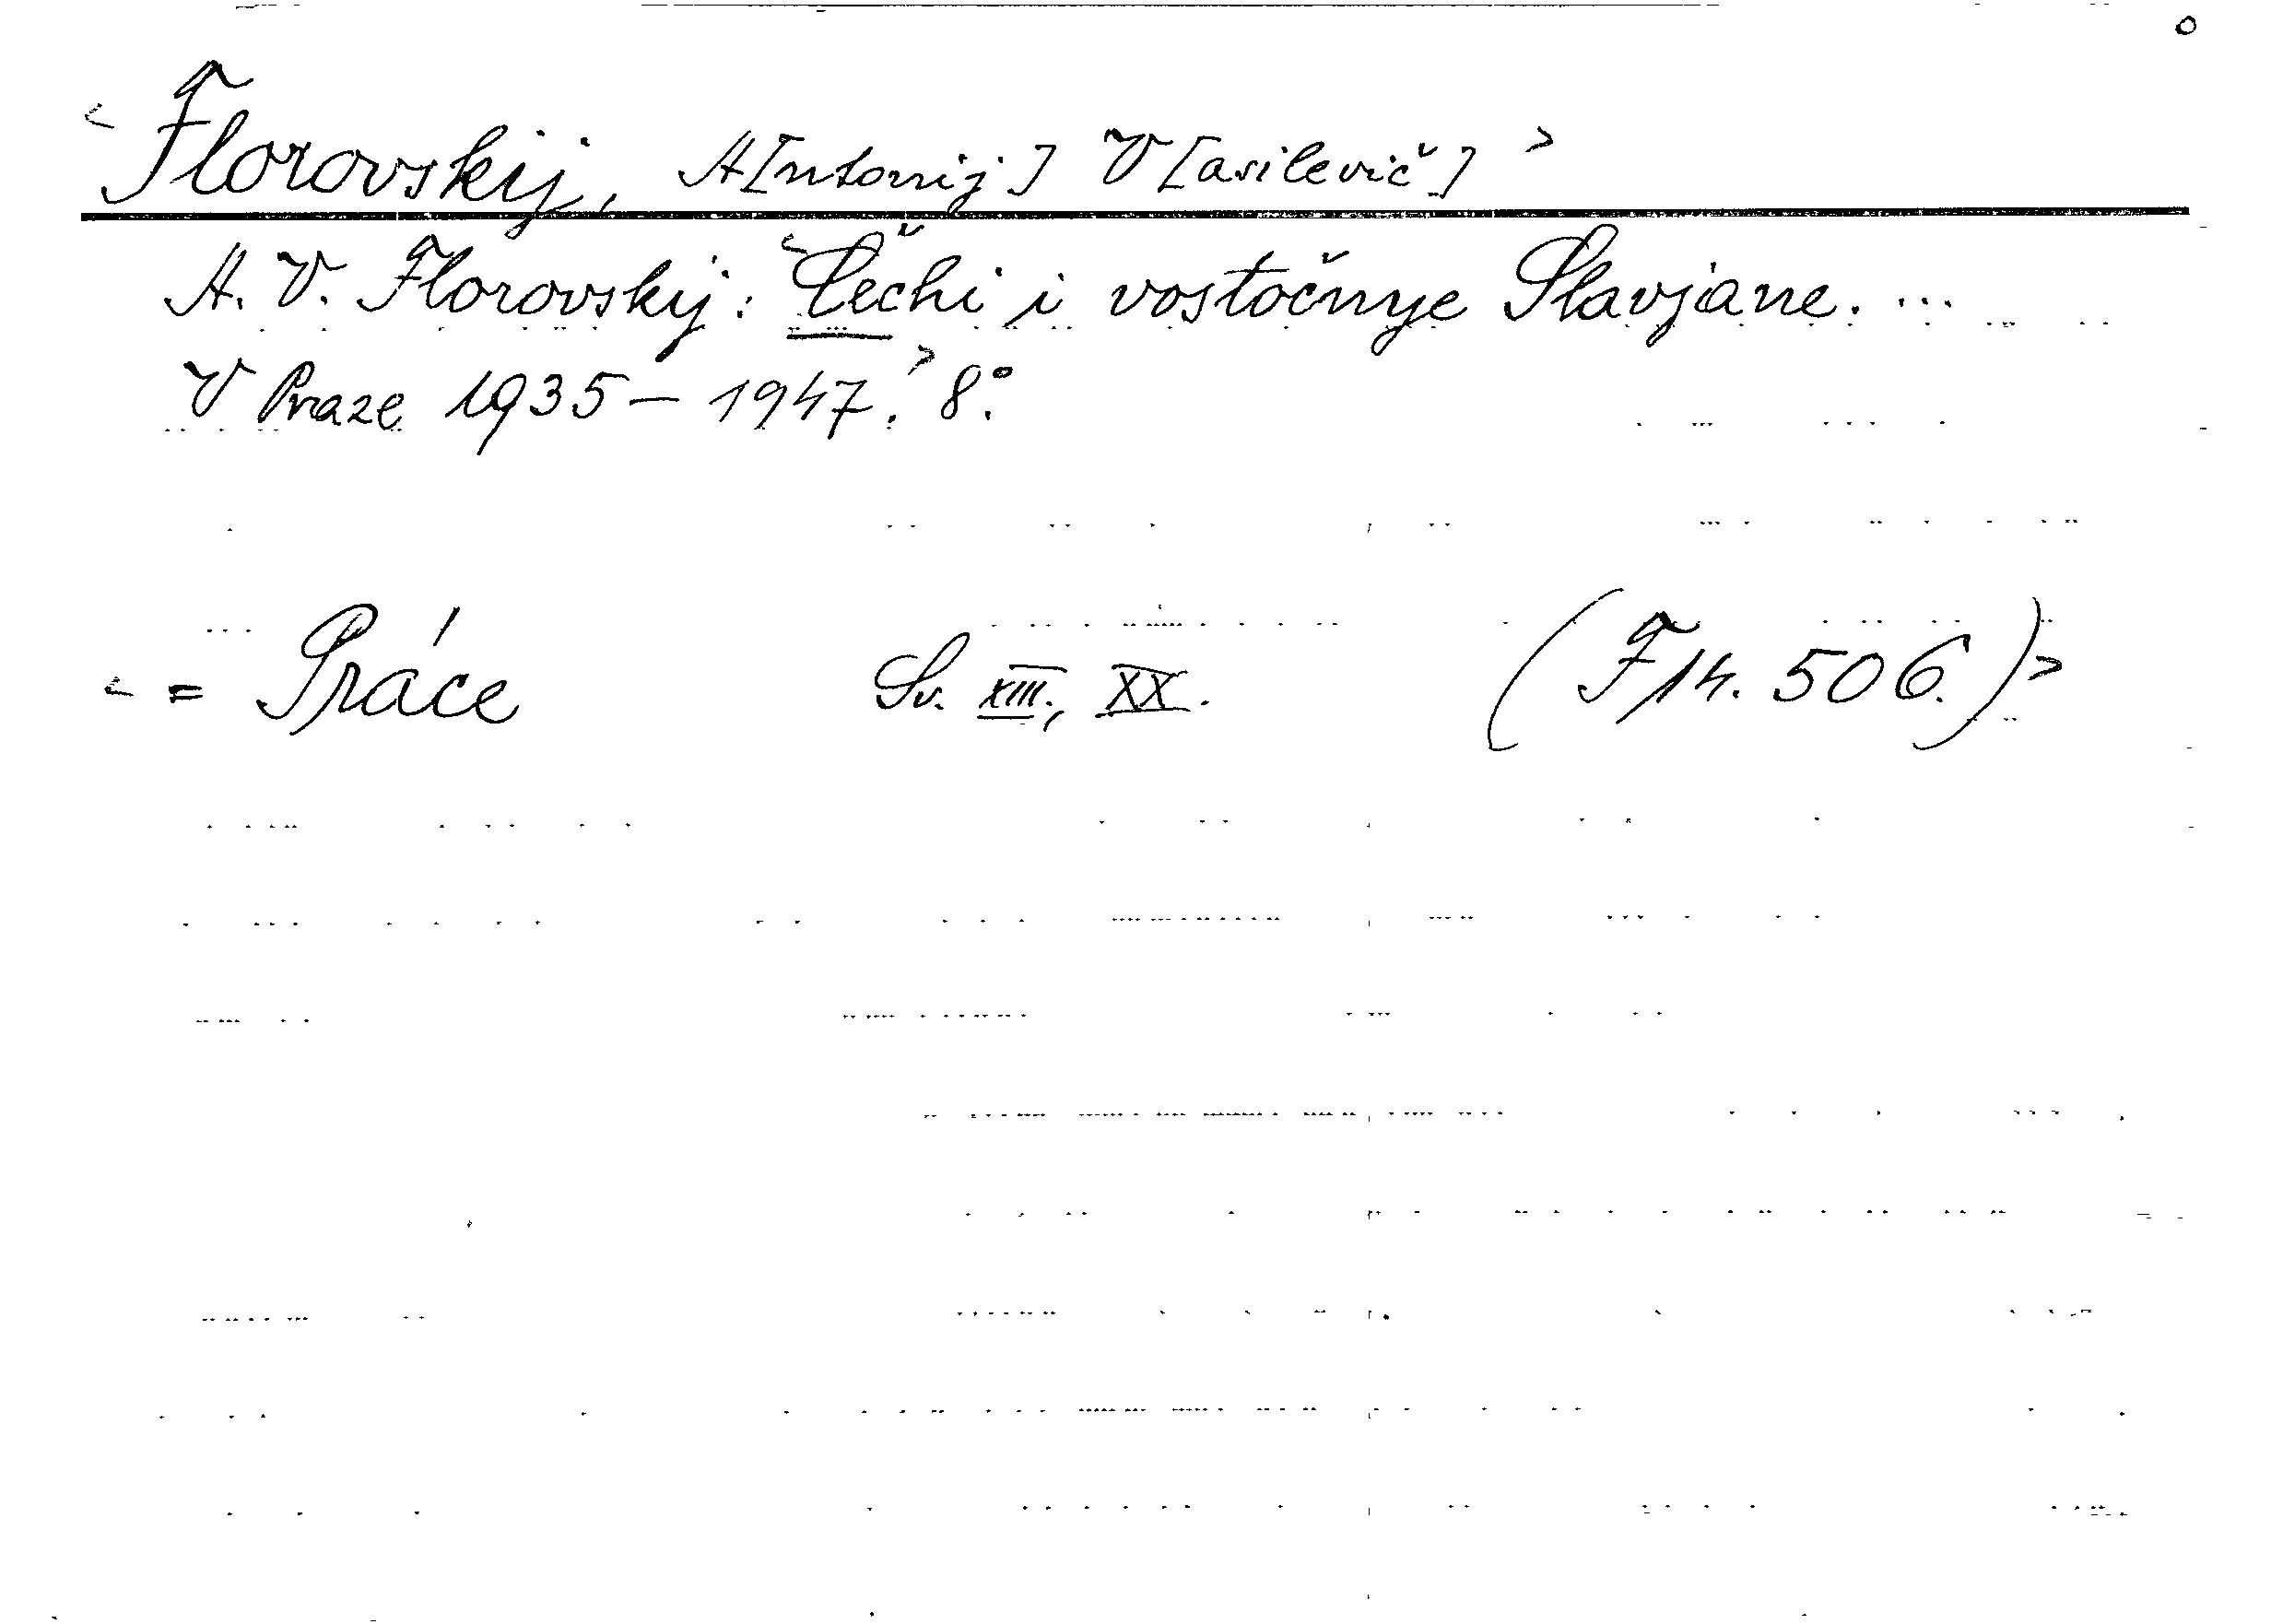 < Florovskij, A[ntonij] V[asilevič] >
A. V. Florovskij: <Čechi i vostočnye Slavjane. ...
V Praze 1935 – 1947.> 8°.
< = Práce Sv. XIII., XX. (F 14.506.) >